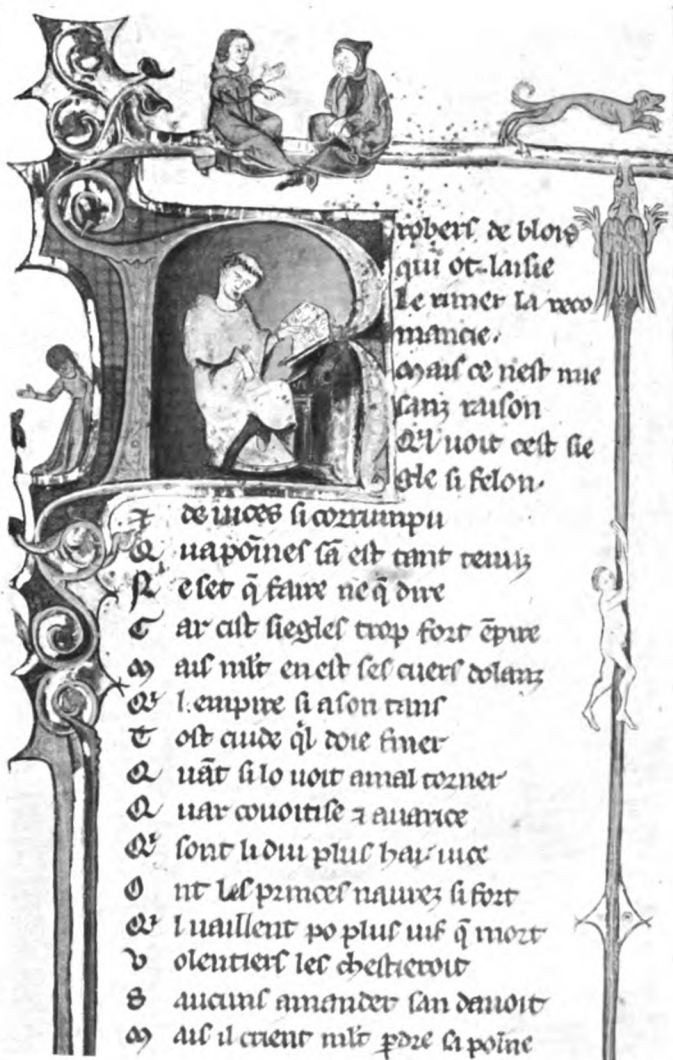 robers de blois
qui ot laisie
Le rimer la reco
mancie.
Mais ce nest mie
sanz raison
Q'l uoit cest sie
gle si felon.
Z de uices si corrumpu
Q ua poīnes sā est tant tenuz
N e set q̄ faire ne q̄ dire
C ar cist siegles trop fort ēpire
M ais mlt en est ses cuers dolanz
Q' l empire si a son tans
T ost cuide q'l doie finer
Q uāt si lo uoit a mal torner
Q uar couoitise ⁊ auarice
Q' sont li dui plus hai uice
O nt les princes naurez si fort
Q' l uaillent po plus uif q̄ mort
V olentiers les chestieroit
S aucuns amander san dauoit
M ais il crient mlt ꝑdre sa poīne